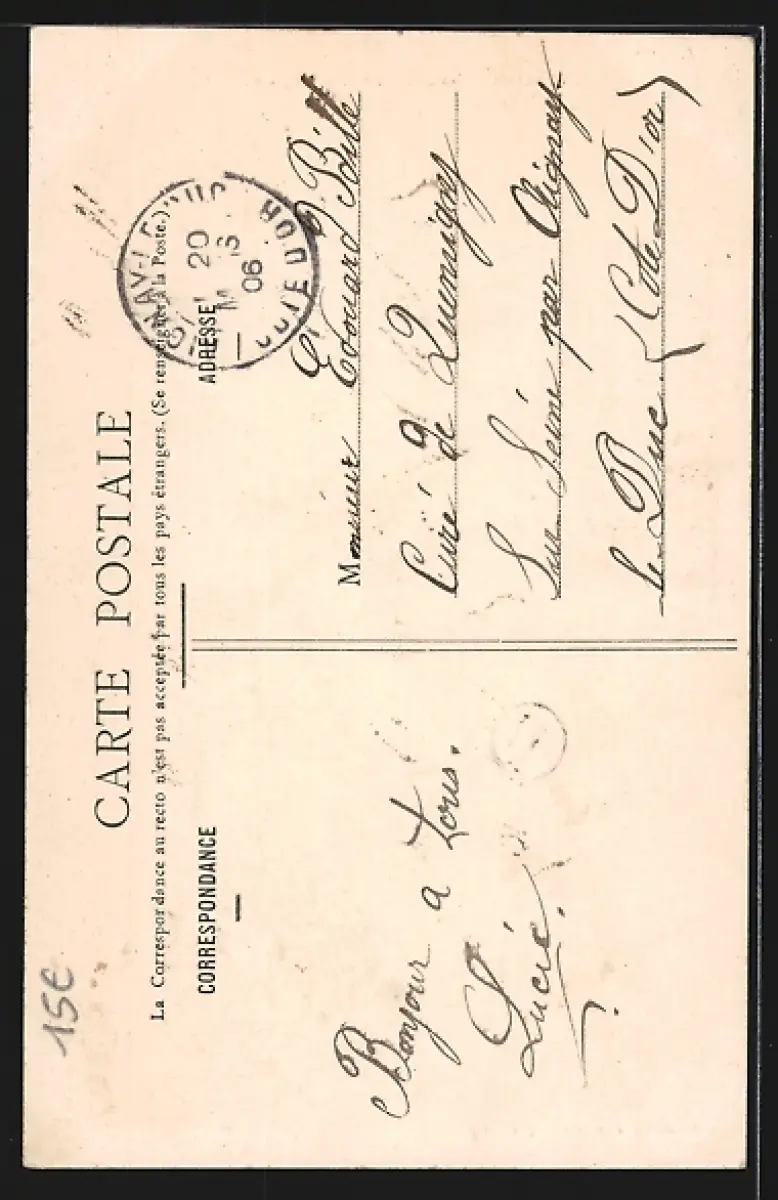 15€
CARTE POSTALE
La Correspondance au recto n'est pas acceptée par tous les pays étrangers. (Se renseigner à la Poste.)
CORRESPONDANCE
ADRESSE
GNAY-LE-DUC
20
06
COTE D'OR
Bonjour a tous.
Lucie.
Monsieur Edouard Bille
Curé de Quemigny
Sur Seine par Aignay
le Duc (Cote D'or)